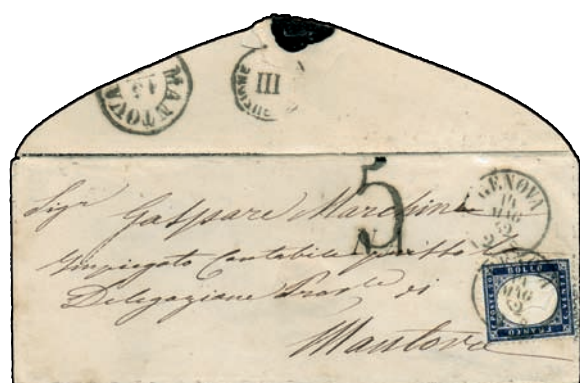 MANTOVA
III
5
GENOVA
MAG
Sigr Gaspare Marchini
Impiegato Contabile presso la
Delegazione Prov.le di
Mantova
BOLLO
FRANCO
POSTE